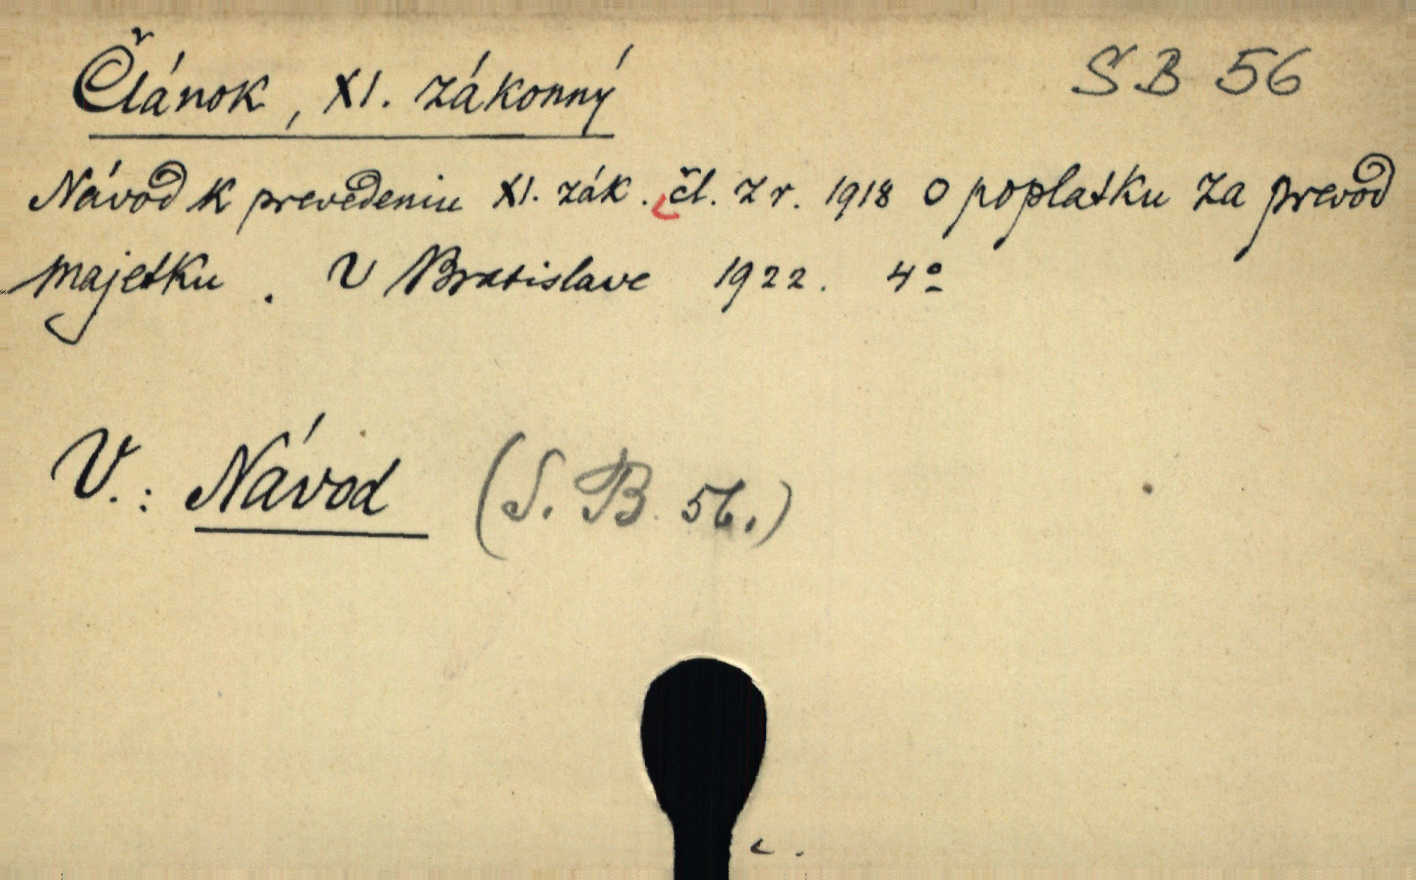 Článok, XI. zákonný
SB 56
Návod k prevedeniu XI. zák. čl. z r. 1918 o poplatku za prevod
majetku. V Bratislave 1922. 4°
V.: Návod (S. B. 56.)
c.